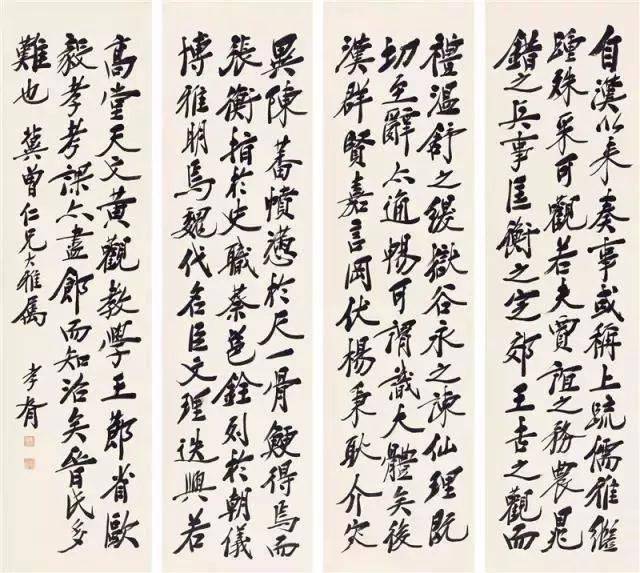 自漢以來奏事或稱上疏儒雅繼
踵殊采可觀若夫賈誼之務農晁
錯之兵事匡衡之定郊王吉之觀而
禮溫舒之緩獄谷永之諫仙理既
切至辭亦通暢可謂識大體矣後
漢群賢嘉言罔伏楊秉耿介灾
異陳蕃憤懣於尺一骨鯁得焉而
張衡指於史職蔡邕銓列於朝儀
博雅明焉魏代名臣文理迭興若
高堂天文黃觀教學王節省
毅考課亦盡節而知治矣晉氏多
難也 冀曾仁兄大雅屬
孝胥